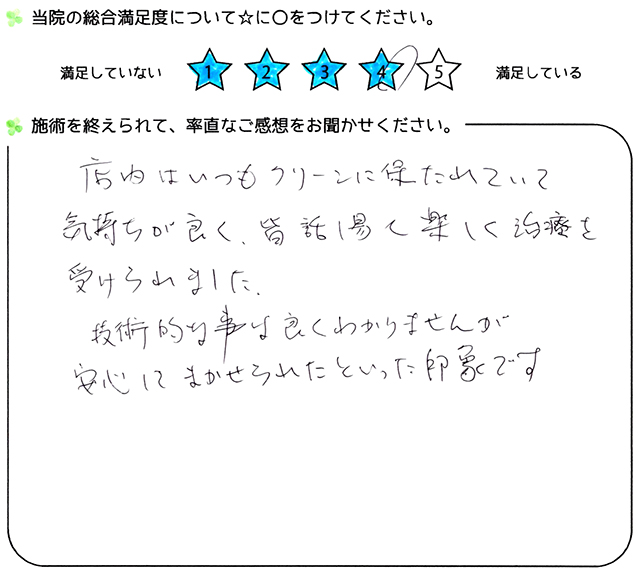 当院の総合満足度について☆に〇をつけてください。
満足していない 1 2 3 4 5 満足している
施術を終えられて、率直なご感想をお聞かせください。
店内はいつもクリーンに保たれていて
気持ちが良く、皆話し易く楽しく治療を
受けられました。
技術的な事は良くわかりませんが
安心してまかせられたといった印象です